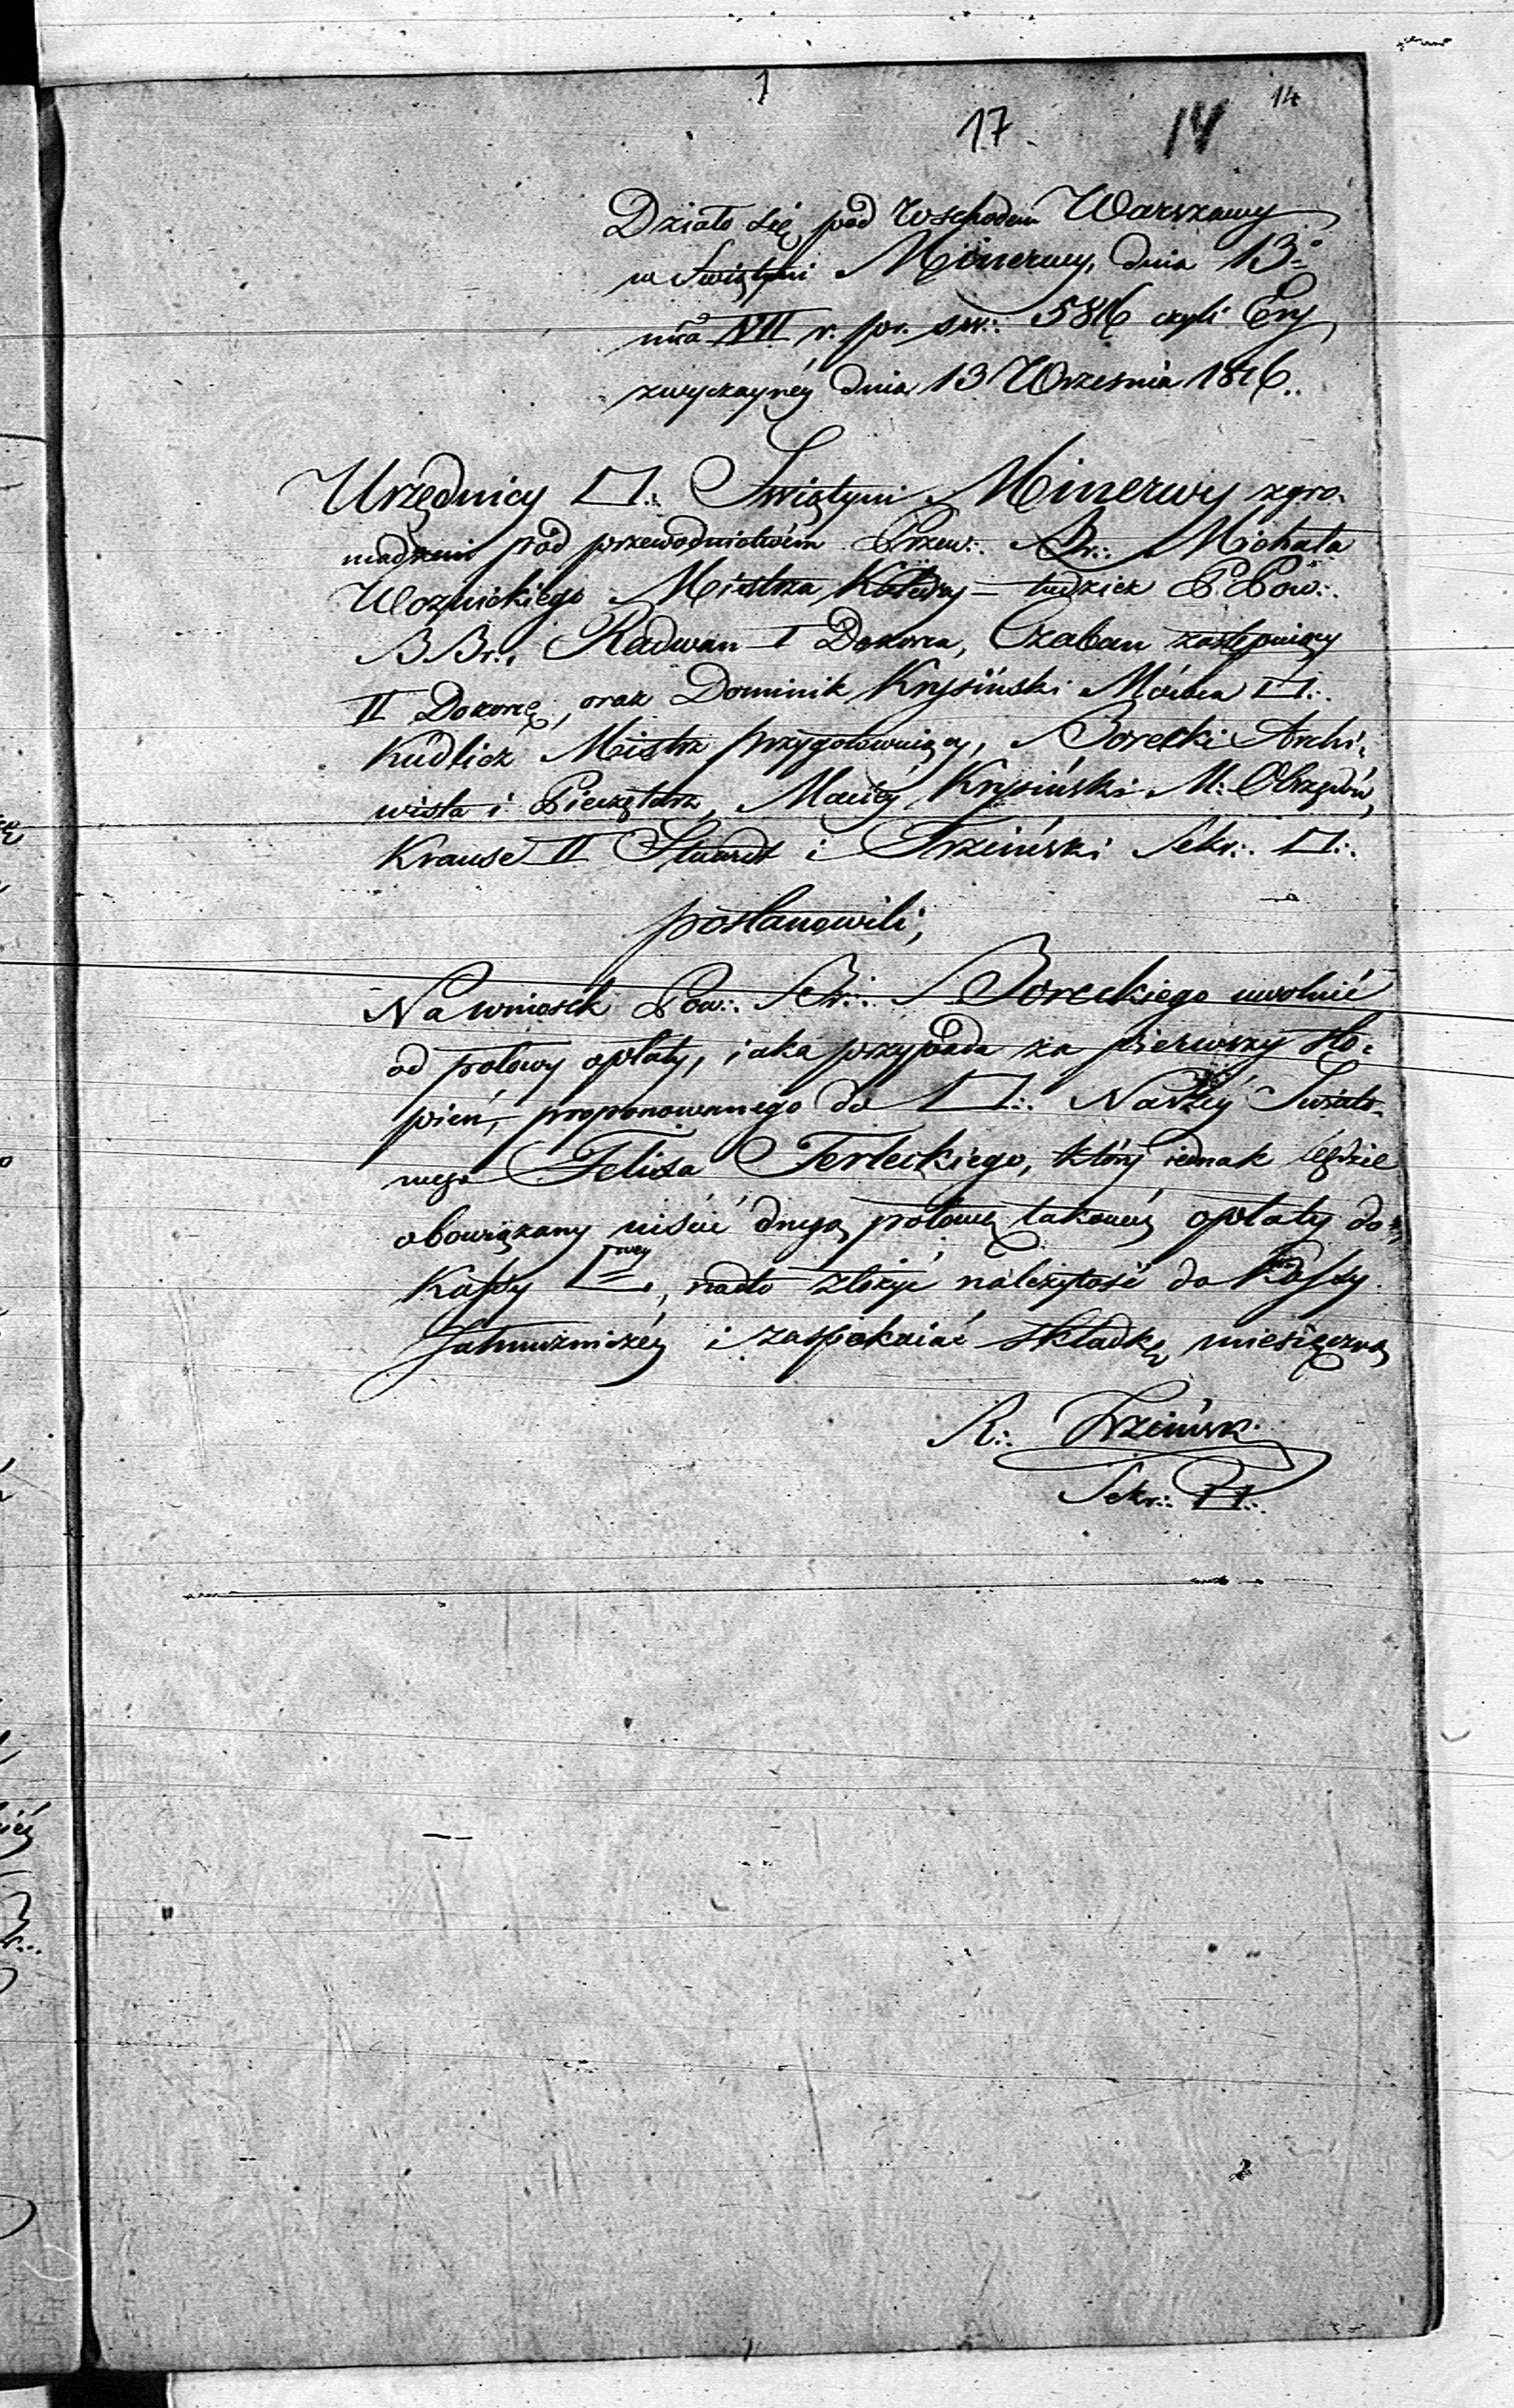 14
17. 14
Działo się pod Wschodem Warszawy
w Swiątyni Minerwy, dnia 13º
mca VII r. pr. sw∴ 5816 czyli Ery
zwyczaynéy dnia 13 Września 1816.
Urzędnicy □∴ Swiątyni Minerwy zgro-
madzeni pod przewodnictwem Przew∴ Br∴ Michała
Woznickiego Mistrza Katedry – tudzież PPow∴
BBr∴ Radwan I Dozorca, Czaban zastępuiący
II Dozorcę, oraz Dominik Krysiński Mówca □∴
Kudlicz Mistrz przygotowuiący, Borecki Archi-
wista i Pieczętarz, Maciéy Krysiński M: Obrzędów,
Krause II Stuard i Trzciński Sekr∴ □∴
postanowili,
Na wniosek Pow∴ Br∴ Boreckiego uwolnić
od połowy opłaty, iaka przypada za pierwszy sto-
pień, proponowanego do □∴ Naszéy Swiato-
wego Felixa Terleckiego, który iednak będzie
obowiązany uiścić drugą połowę takowéy opłaty do
Kassy □wéy, nadto złożyć należytość do Kassy
Jałmużniczéy i zaspokaiać składkę miesięczną
R∴ Trzciński
Sekr∴ □∴